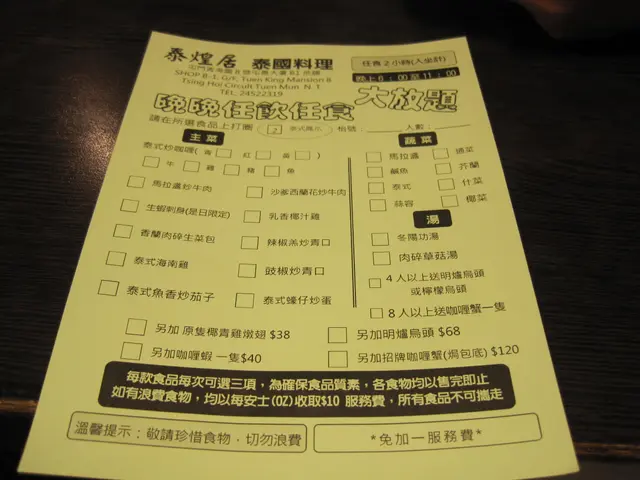 泰煌居 泰國料理
SHOP B-1, G/F, Tuen King Mansion B
Tsing Hoi Circuit Tuen Mun N.T
TEL. 24522319
任食2小時(入坐計)
晚上6:00至11:00
晚晚任飲任食大放題
請在所選食品上打圈 枱號: 人數:
主菜
泰式炒咖喱( 青 紅 黃 )
牛 雞 豬 魚
馬拉盞炒牛肉 沙爹西蘭花炒牛肉
生蝦刺身(是日限定) 乳香椰汁雞
香蘭肉碎生菜包 辣椒羔炒青口
泰式海南雞 豉椒炒青口
泰式魚香炒茄子 泰式蠔仔炒蛋
蔬菜
馬拉盞 通菜
鹹魚 芥蘭
泰式 什菜
蒜容 椰菜
湯
冬陽功湯
肉碎草菇湯
4人以上送明爐烏頭
或檸檬烏頭
8人以上送咖喱蟹一隻
另加 原隻椰青雞燉翅 $38 另加明爐烏頭 $68
另加咖喱蝦 一隻$40 另加招牌咖喱蟹(焗包底) $120
每款食品每次可選三項，為確保食品質素，各食物均以售完即止
如有浪費食物，均以每安士(OZ)收取$10 服務費，所有食品不可攜走
溫馨提示：敬請珍惜食物，切勿浪費
*免加一服務費*